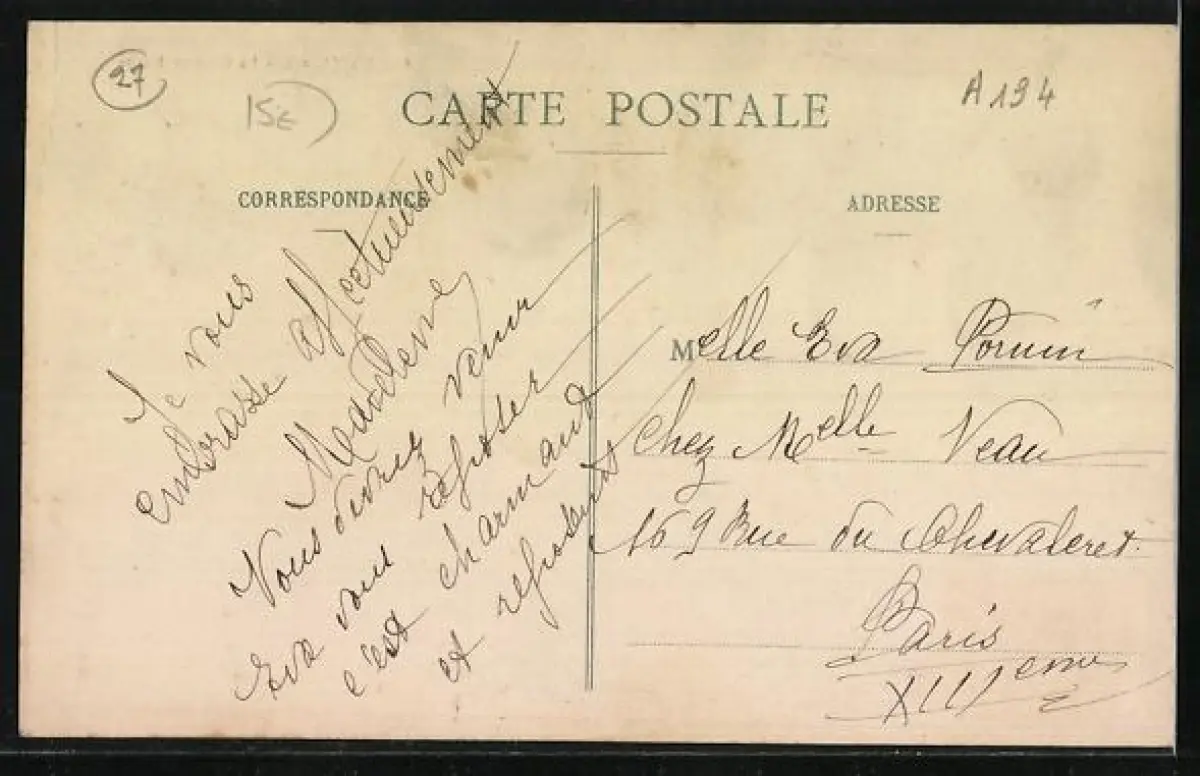 27
15€
CARTE POSTALE
A194
CORRESPONDANCE
ADRESSE
Je vous
embrasse affectueusement
Madeleine
Vous devriez venir
Eva vous reposer
c'est charmant
et reposant
Melle Eva
chez Melle Veau
169 Rue du Chevaleret
Paris
XIIIeme